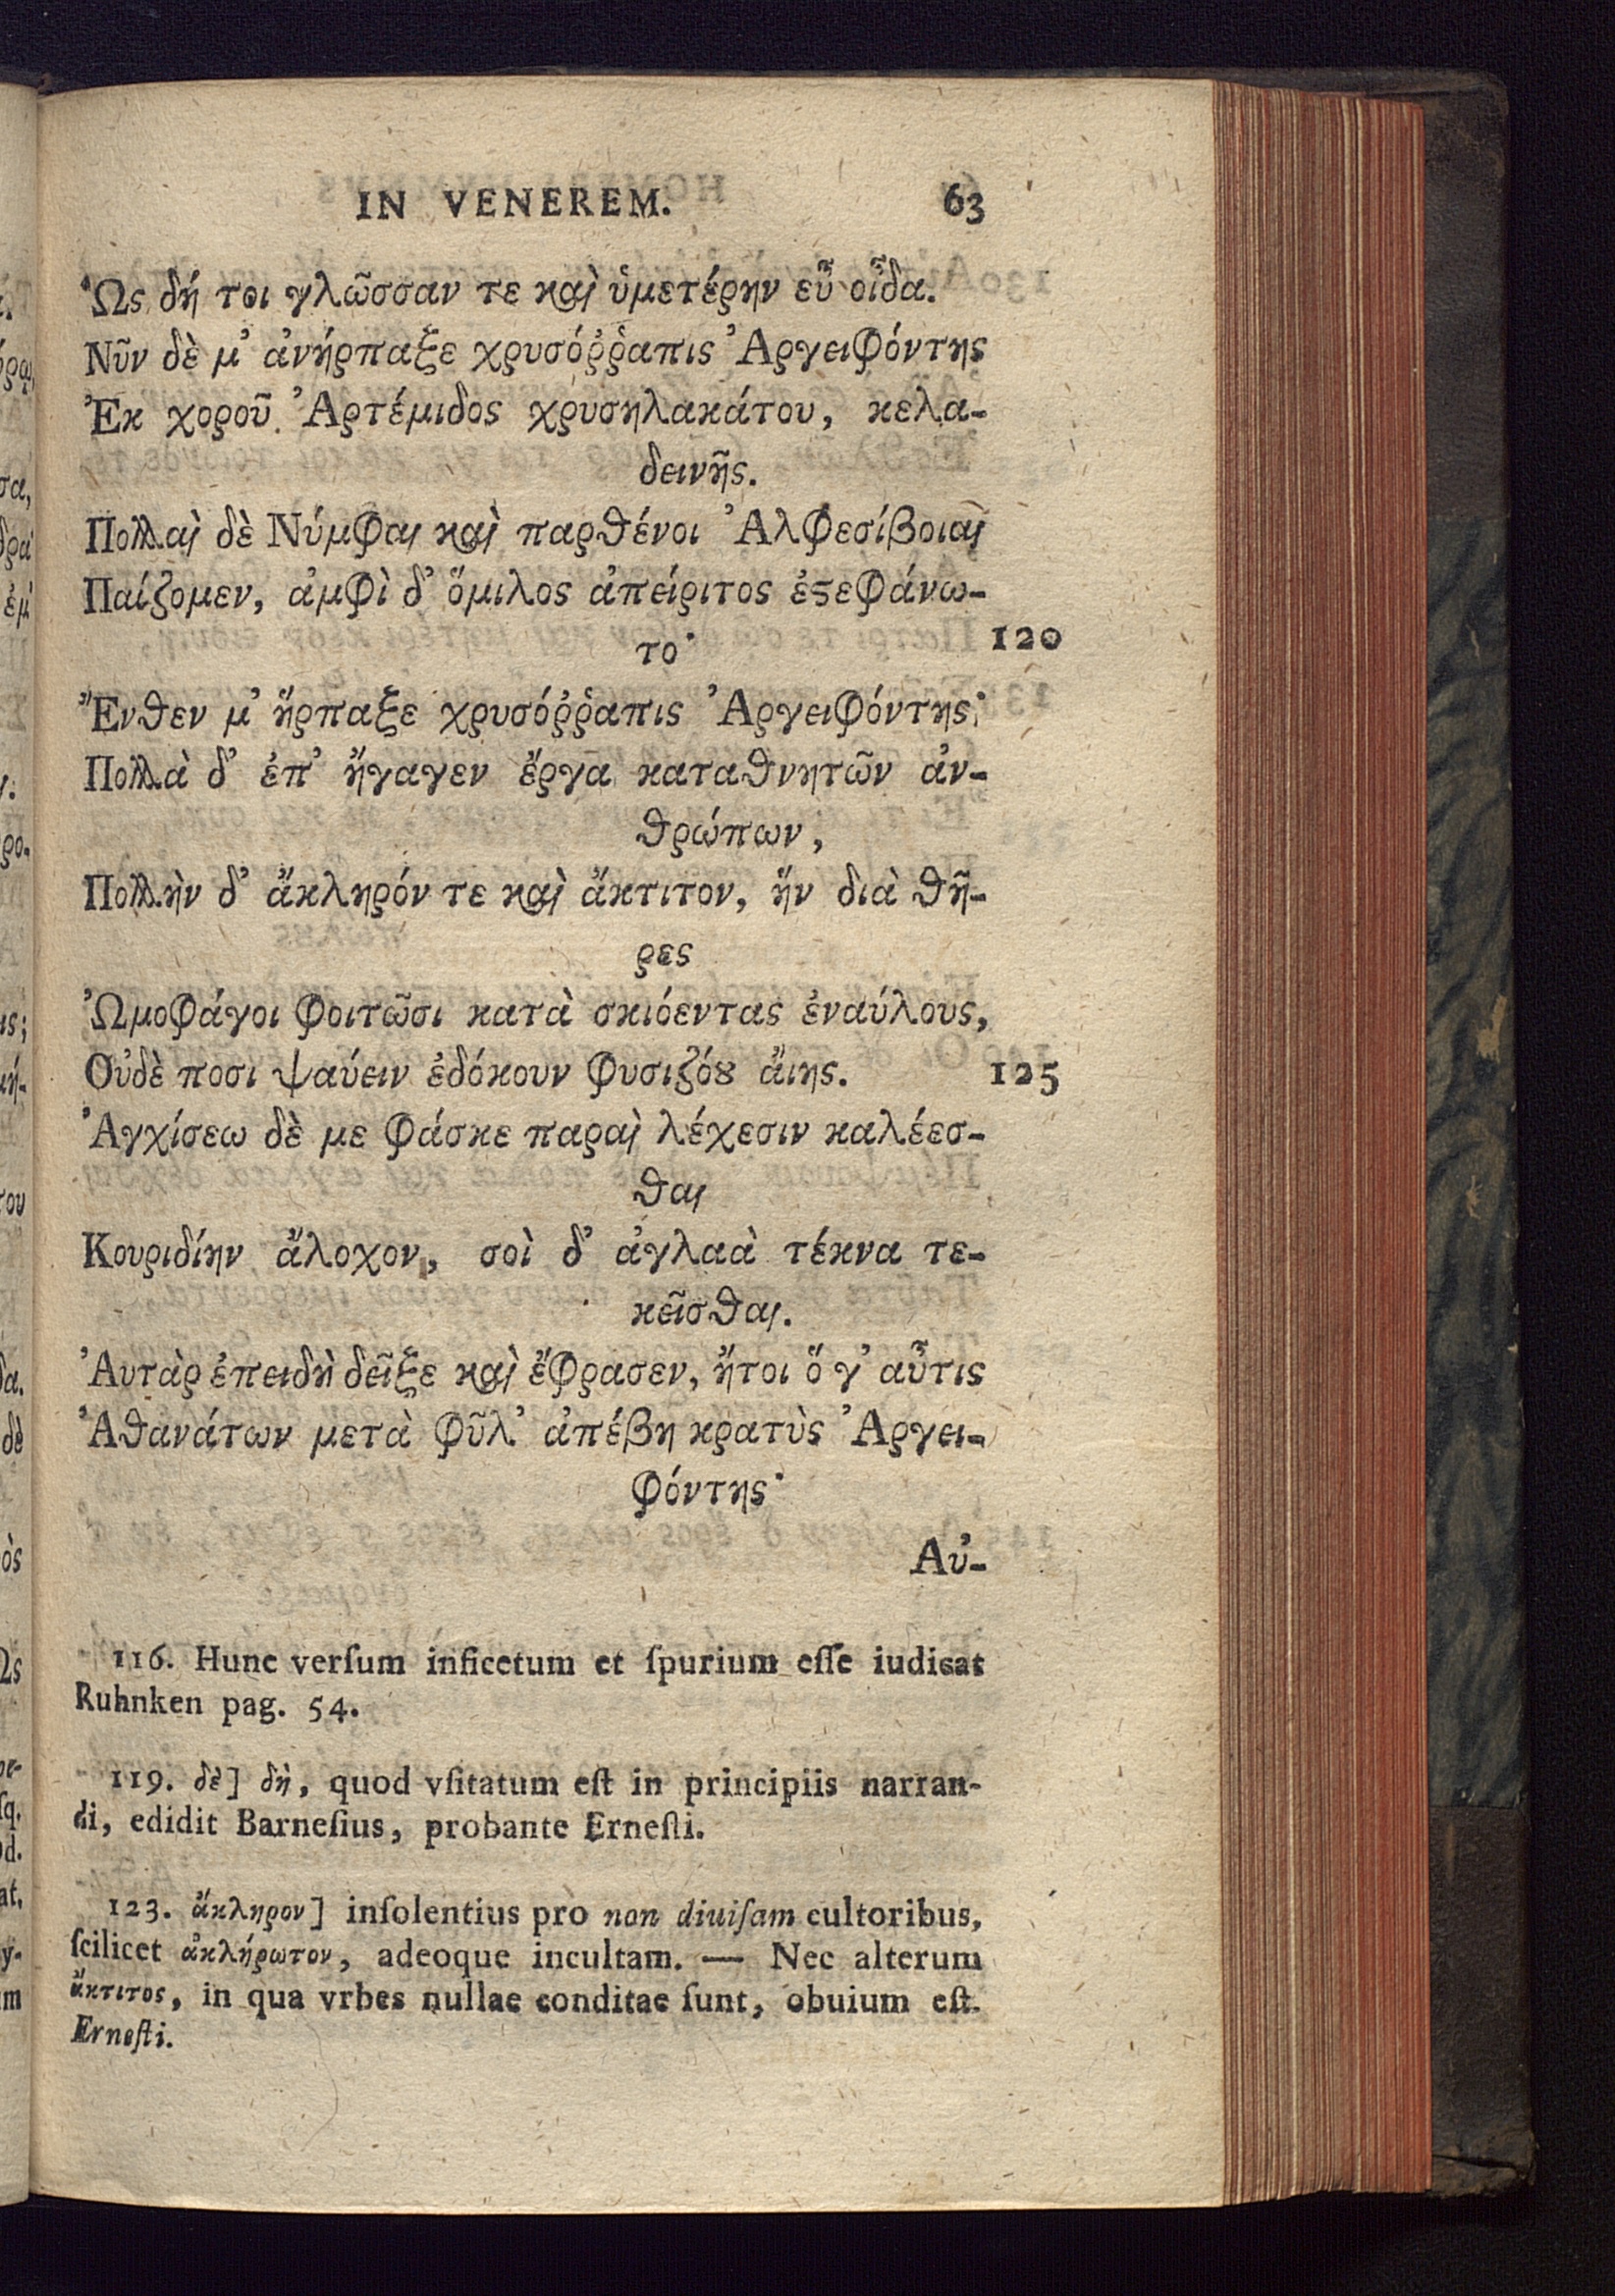 IN VENEREM. 63
Ὣς δή τοι γλῶσσαν τε καὶ ὑμετέρην εὖ οἶδα.
Νῦν δὲ μ' ἀνήρπαξε χρυσόῤῥαπις Ἀργειφόντης
Ἐκ χοροῦ Ἀρτέμιδος χρυσηλακάτου, κελα-
δεινῆς.
Πολλαὶ δὲ Νύμφαι καὶ παρθένοι Ἀλφεσίβοιαι
Παίζομεν, ἀμφὶ δ' ὅμιλος ἀπείριτος ἐστεφάνω-
το· 120
Ἔνθεν μ' ἥρπαξε χρυσόῤῥαπις Ἀργειφόντης·
Πολλὰ δ' ἐπ' ἤγαγεν ἔργα καταθνητῶν ἀν-
θρώπων,
Πολλὴν δ' ἄκληρόν τε καὶ ἄκτιτον, ἥν διὰ θῆ-
ρες
Ὠμοφάγοι φοιτῶσι κατὰ σκιόεντας ἐναύλους,
Οὐδὲ ποσι ψαύειν ἐδόκουν φυσιζόου ἄιης. 125
Ἀγχίσεω δὲ με φάσκε παραὶ λέχεσιν καλέεσ-
θαι
Κουριδίην ἄλοχον, σοὶ δ' ἀγλαὰ τέκνα τε-
κεῖσθαι.
Ἀυτὰρ ἐπειδὴ δεῖξε καὶ ἔφρασεν, ἤτοι ὅ γ' αὖτις
Ἀθανάτων μετὰ φῦλ' ἀπέβη κρατὺς Ἀργει-
φόντης·
Αὐ-
116. Hunc verſum inficetum et ſpurium eſſe iudicat
Ruhnken pag. 54.
119. δὲ] δὴ, quod vſitatum eſt in principiis narran-
di, edidit Barneſius, probante Erneſti.
123. ἄκληρον] inſolentius pro non diuiſam cultoribus,
ſcilicet ἀκλήρωτον, adeoque incultam. — Nec alterum
ἄκτιτος, in qua vrbes nullae conditae ſunt, obuium eſt.
Erneſti.